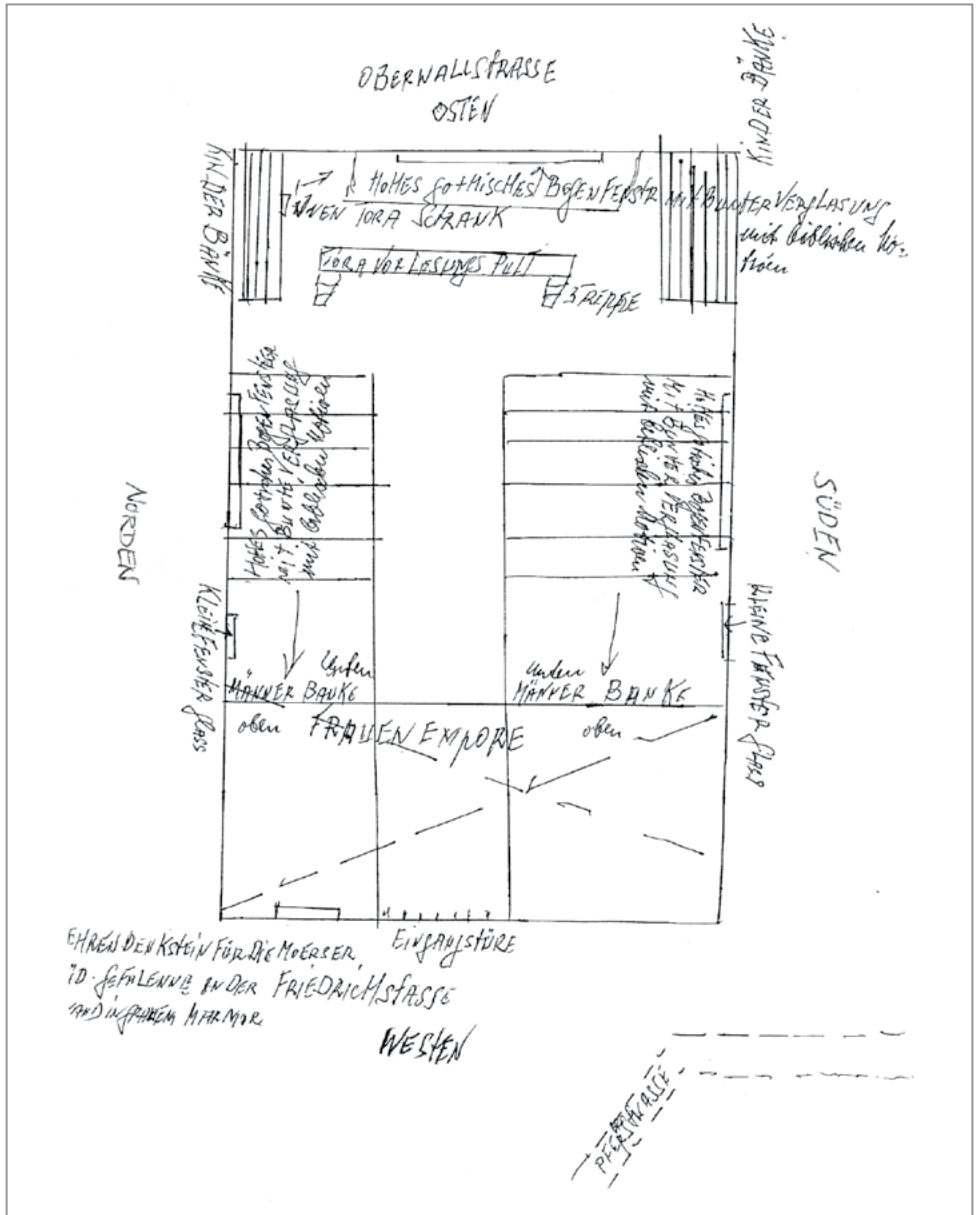 OBERWALLSTRASSE
OSTEN
KINDER BÄNKE
KINDER BÄNKE
HOHES GOTHISCHES BOGENFENSTR MIT BUNTER VERGLASUNG
mit biblischen Mo=
tiven
TORA SCHRANK
TORA VORLESUNGS PULT
TREPPE
HOHES BOGENFENSTER
MIT BUNTE VERGLASUNG
mit biblischen Motiven
HOHES BOGENFENSTER
MIT BUNTER VERGLASUNG
mit biblischen Motiven
NORDEN
SÜDEN
KLEIN FENSTER GLASS
KLEINE FENSTER
Unten
MÄNNER BANKE
unten
MÄNNER BANKE
oben FRAUEN EMPORE oben
EINGANGSTÜRE
EHRENDENKSTEIN FÜR DIE MOERSER
GEFALENNE AN DER FRIEDRICHSTASSE
MARMOR
WESTEN